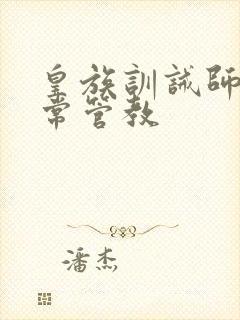 皇族訓誡師
常管教
潘杰